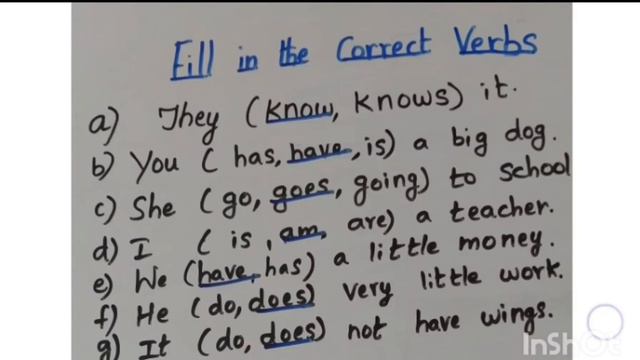 Fill in the Correct Verbs
a) They (know, knows) it.
b) You ( has, have, is) a big dog.
c) She (go, goes, going) to school
d) I ( is, am, are) a teacher.
e) We (have, has) a little money.
f) He (do, does) very little work.
g) It (do, does) not have wings.
InShOt